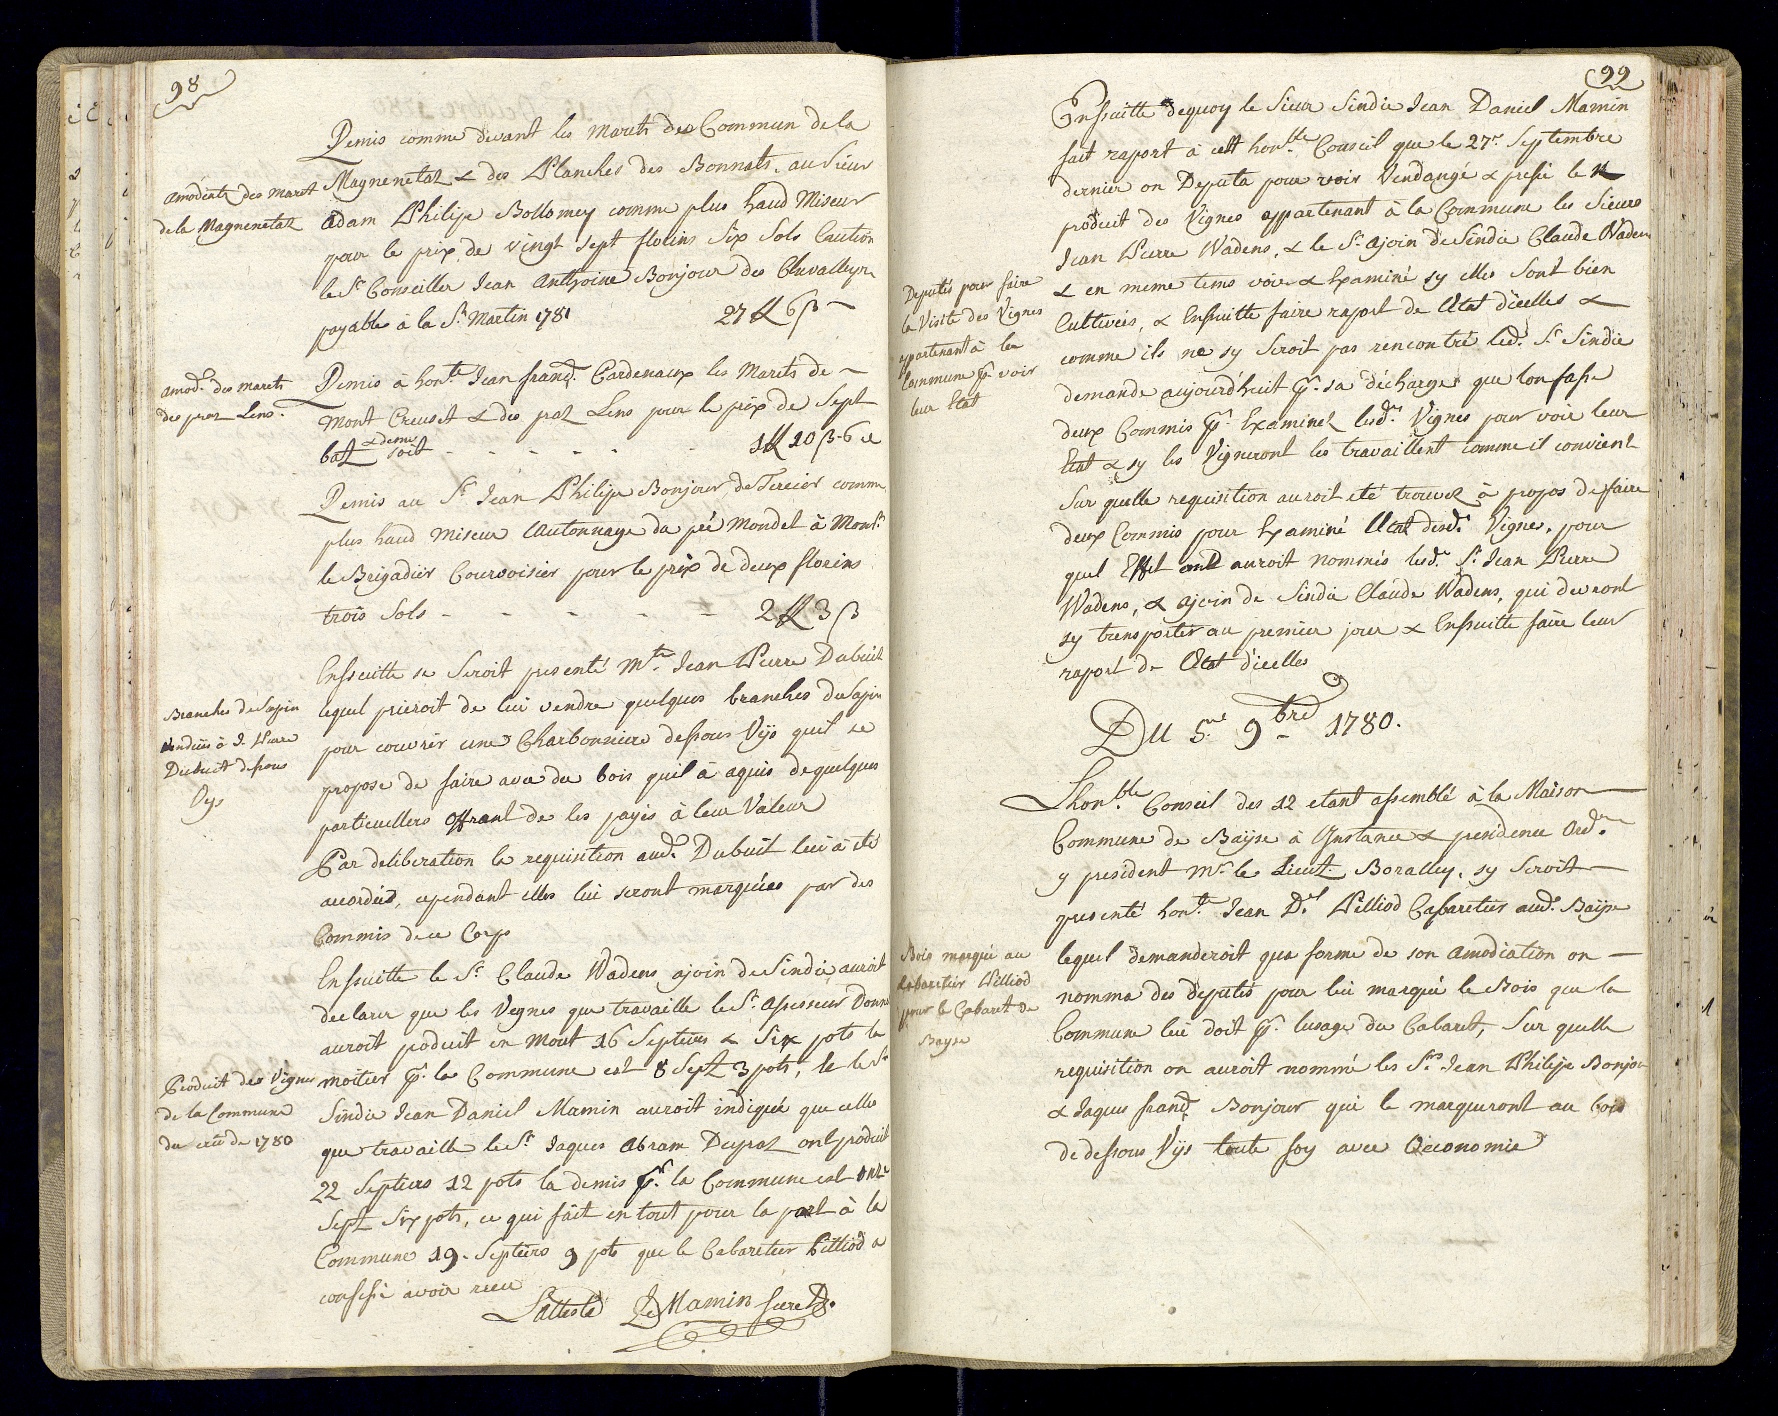 98
Remis comme devant les marets des Commun de la
Amodiat.° des maret
de la Magnenetaz
Magnenetaz & des Planches des Bonnats, au Sieur
Adam Philipe Bollomey comme plus haud Miseur
pour le prix de vingt sept florins Six Sols Caution
le Sr. Conseiller Jean Anthoine Bonjour des Chevalleyre
payable à la St. Martin 1781 27 ff 6 β
amod.° des marets
des praz Lens.
Remis à hon.te Jean franç.s Cardenaux les Marets de
Mont Creuset & des praz Lens pour le prix de Sept
batz & demi soit - - - - - - 1 ff 10 β 6 d
Remis au Sr. Jean Philipe Bonjour, de Tercier comme
plus haud Miseur l'autonnage du pré Mondet à Mons.r
le Brigadier Courvoisier pour le prix de deux florins
trois Sols - - - - - 2 ff 3 β
Branches de Sapin
vendües à J. Pierre
Dubuit dessous
Vÿs
Ensuitte se Seroit presenté M.tre Jean Pierre Dubuit
lequel prieroit de lui vendre quelques branches de Sapin
pour couvrir une Charbonniere dessous Vÿs quil se
propose de faire avec du bois quil à aquis de quelques
particuillers offrant de les payés à leur Valeur
Par deliberation la requisition aud.t Dubuit lui à été
accordéé, cependant elles lui seront marquéés par des
Commis de ce Corps
Ensuitte le Sr. Claude Wadens ajoin de Sindic, auroit
declarer que les Vignes que travaille le Sr. assesseur Donna
auroit produit en Mout 16 Septiers & Six pots la
Produit des Vignes
de la Commune
du crû de 1780
moitier pr. la Commune est 8 Sept 3 pots, & le Sr.
Sindic Jean Daniel Mamin auroit indiqué que celles
que travaille le Sr. Jaques Abram Dupraz ont produit
22 Septiers 12 pots la demis pr. la Commune est onze
Sept Six pots, ce qui fait en tout pour la part à la
Commune 19. Septiers 9 pots que le Cabaretier Pilliod a
confessé avoir reçu
L'atteste JD Mamin Secret.
99
Ensuitte dequoy le Sieur Sindic Jean Daniel Mamin
fait raport à cett hon.ble Conseil que le 27.e Septembre
dernier on Deputa pour voir Vendange & presse le
produit des Vignes appartenant à la Commune les Sieurs
Jean Pierre Wadens, & le Sr. ajoin de Sindic Claude Wadens
Deputés pour faire
la Visite des Vignes
apartenant à la
Commune pr. voir
leur Etat
& en meme tems voir & Examiné sy elles Sont bien
Cultivéés, & Ensuitte faire raport de l'Etat d'icelles &
comme ils ne sy Seroit pas rencontré led.t Sr. Sindic
demande aujourdhuit pr. sa décharge que lon fasse
deux Commis pr. Examiner lesd.es Vignes pour voir leur
Etat & sy les Vigneront les travaillent comme il convient
Sur quelle requisition auroit été trouvez à propos de faire
deux Commis pour Examiné l'Etat desd.es Vignes, pour
quel Effet on auroit nommés lesd.ts Sr. Jean Pierre
Wadens, & ajoin de Sindic Claude Wadens, qui devront
sy transporter au premier jour & Ensuitte faire leur
raport de l'Etat d'icelles
Du 5.me 9.bre 1780.
Lhon.ble Conseil des 12 etant assemblé à la Maison
Commune de Bayse à l'Instance & presidence Ord.re
y president Mr. le Lieut.t Boralley, sy Seroit
presenté hon.te Jean D.el Pilliod Cabaretier aud.t Bayse
Bois marqué au
Cabaretier Pilliod
pour le Cabaret de
Bayse
lequel demanderoit qua forme de son amodiation on
nomma des deputés pour lui marqué le Bois que la
Commune lui doit pr. lusage du Cabaret, Sur quelle
requisition on auroit nommé les Srs. Jean Philipe Bonjour
& Jaques franç.s Bonjour qui le marqueront au bois
de dessous Vÿs toute foy avec Oéconomie